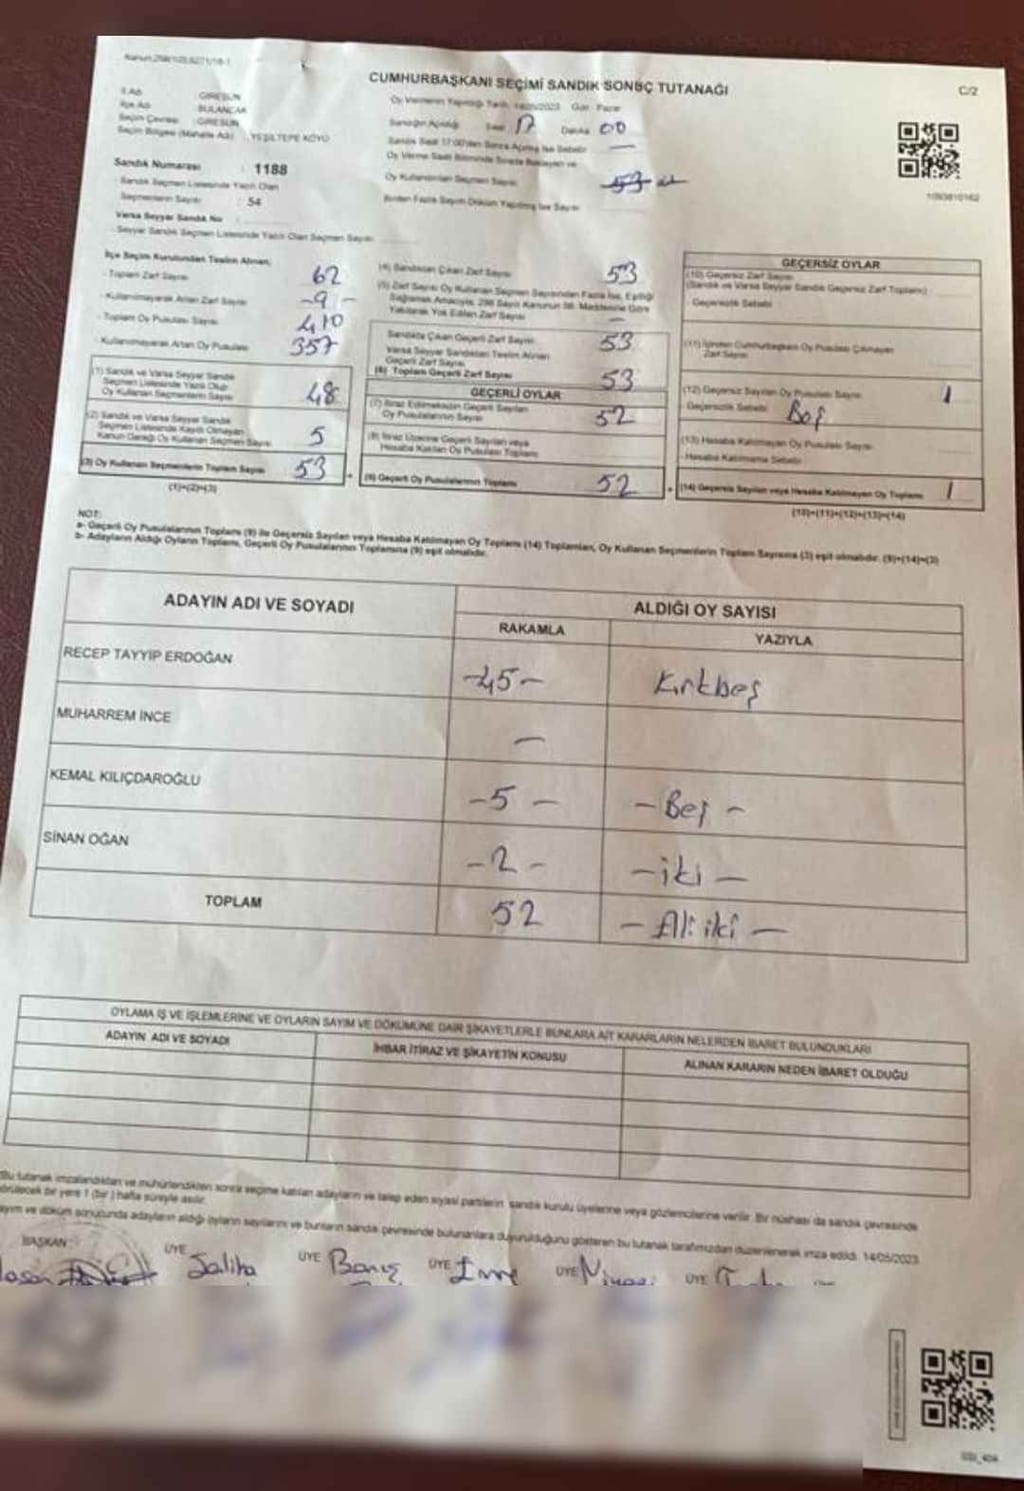 Kanun:298/103,6271/18-1
CUMHURBAŞKANI SEÇİMİ SANDIK SONUÇ TUTANAĞI
C/2
İl Adı : GİRESUN
İlçe Adı : BULANCAK
Seçim Çevresi : GİRESUN
Seçim Bölgesi (Mahalle Adı) : YEŞİLTEPE KÖYÜ
Sandık Numarası : 1188
Sandık Seçmen Listesinde Yazılı Olan
Seçmenlerin Sayısı : 54
Varsa Seyyar Sandık No :
Seyyar Sandık Seçmen Listesinde Yazılı Olan Seçmen Sayısı
Oy Vermenin Yapıldığı Tarih: 14/05/2023 Gün: Pazar
Sandığın Açıldığı Saat 17 Dakika 00
Sandık Saat 17:00'den Sonra Açılmış İse Sebebi: —
Oy Verme Saati Bitiminde Sırada Bekleyen ve
Oy Kullandırılan Seçmen Sayısı 53
Birden Fazla Sayım Döküm Yapılmış İse Sayısı
İlçe Seçim Kurulundan Teslim Alınan;
- Toplam Zarf Sayısı 62
- Kullanılmayarak Artan Zarf Sayısı -9-
- Toplam Oy Pusulası Sayısı 410
- Kullanılmayarak Artan Oy Pusulası 357
(1) Sandık ve Varsa Seyyar Sandık
Seçmen Listesinde Yazılı Olup
Oy Kullanan Seçmenlerin Sayısı 48
(2) Sandık ve Varsa Seyyar Sandık
Seçmen Listesinde Kayıtlı Olmayan
Kanun Gereği Oy Kullanan Seçmen Sayısı 5
(3) Oy Kullanan Seçmenlerin Toplam Sayısı 53
(1)+(2)=(3)
(4) Sandıktan Çıkan Zarf Sayısı 53
(5) Zarf Sayısı Oy Kullanan Seçmen Sayısından Fazla İse, Eşitliği
Sağlamak Amacıyla, 298 Sayılı Kanunun 98. Maddesine Göre
Yakılarak Yok Edilen Zarf Sayısı —
Sandıkta Çıkan Geçerli Zarf Sayısı 53
Varsa Seyyar Sandıktan Teslim Alınan
Geçerli Zarf Sayısı
(6) Toplam Geçerli Zarf Sayısı 53
GEÇERLİ OYLAR
(7) İtiraz Edilmeksizin Geçerli Sayılan
Oy Pusulalarının Sayısı 52
(8) İtiraz Üzerine Geçerli Sayılan veya
Hesaba Katılan Oy Pusulası Toplamı
(9) Geçerli Oy Pusulalarının Toplamı 52
GEÇERSİZ OYLAR
(10) Geçersiz Zarf Sayısı
(Sandık ve Varsa Seyyar Sandık Geçersiz Zarf Toplamı)
Geçersizlik Sebebi
(11) İçinden Cumhurbaşkanı Oy Pusulası Çıkmayan
Zarf Sayısı
(12) Geçersiz Sayılan Oy Pusulası Sayısı 1
Geçersizlik Sebebi Boş
(13) Hesaba Katılmayan Oy Pusulası Sayısı
Hesaba Katılmama Sebebi
(14) Geçersiz Sayılan veya Hesaba Katılmayan Oy Toplamı 1
(10)+(11)+(12)+(13)=(14)
NOT:
a- Geçerli Oy Pusulalarının Toplamı (9) ile Geçersiz Sayılan veya Hesaba Katılmayan Oy Toplamı (14) Toplamları, Oy Kullanan Seçmenlerin Toplam Sayısına (3) eşit olmalıdır. (9)+(14)=(3)
b- Adayların Aldığı Oyların Toplamı, Geçerli Oy Pusulalarının Toplamına (9) eşit olmalıdır.
ADAYIN ADI VE SOYADI
ALDIĞI OY SAYISI
RAKAMLA YAZIYLA
RECEP TAYYİP ERDOĞAN -45- Kırkbeş
MUHARREM İNCE —
KEMAL KILIÇDAROĞLU -5- -Beş-
SİNAN OĞAN -2- -iki-
TOPLAM 52 -Elli iki-
OYLAMA İŞ VE İŞLEMLERİNE VE OYLARIN SAYIM VE DÖKÜMÜNE DAİR ŞİKAYETLERLE BUNLARA AİT KARARLARIN NELERDEN İBARET BULUNDUKLARI
ADAYIN ADI VE SOYADI İHBAR İTİRAZ VE ŞİKAYETİN KONUSU ALINAN KARARIN NEDEN İBARET OLDUĞU
Bu tutanak imzalandıktan ve mühürlendikten sonra seçime katılan adayların ve talep eden siyasi partilerin sandık kurulu üyelerine veya gözlemcilerine verilir. Bir nüshası da sandık çevresinde
görülecek bir yere 1 (bir) hafta süreyle asılır.
sayım ve döküm sonutunda adayların aldığı oyların sayılarını ve bunların sandık çevresinde bulunanlara duyurulduğunu gösteren bu tutanak tarafımızdan düzenlenerek imza edildi. 14/05/2023
BAŞKAN ÜYE ÜYE ÜYE ÜYE ÜYE
Hasan Saliha Barış Emre